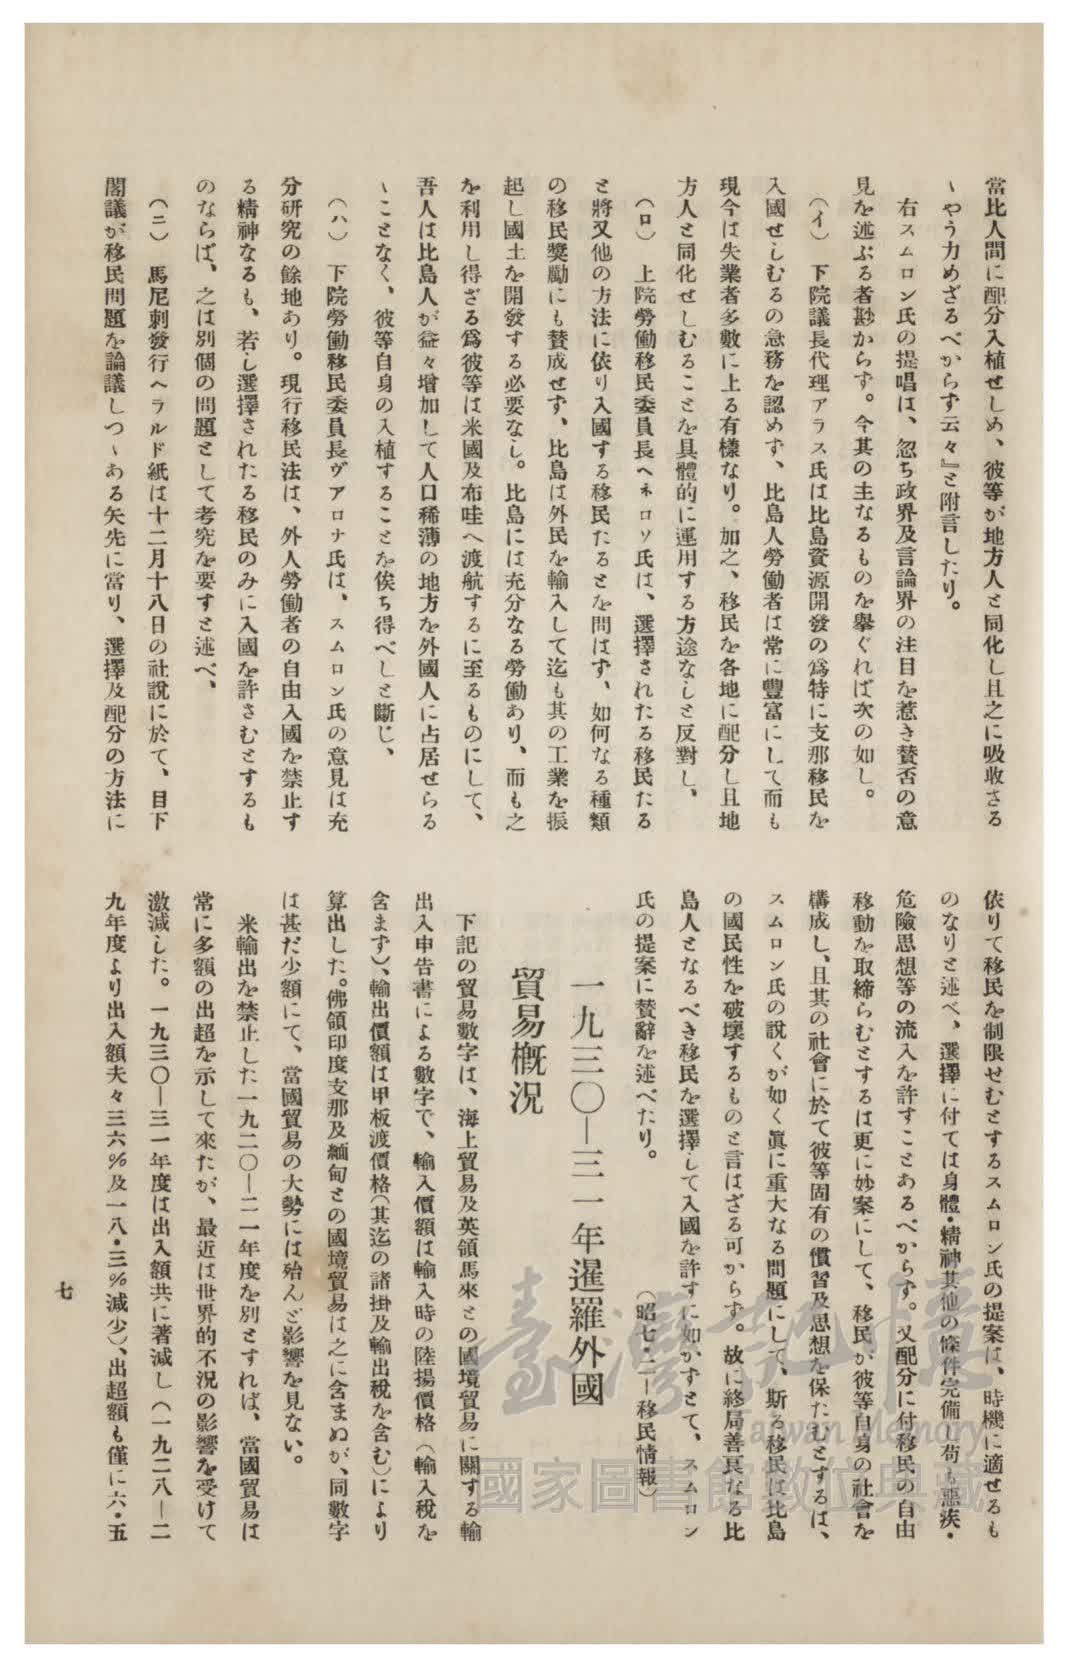 當比人間に配分入植せしめ、彼等が地方人と同化し且之に吸收さる
ゝやう力めざるべからず云々』と附言したり。
右スムロン氏の提唱は、忽ち政界及言論界の注目を惹き贊否の意
見を述ぶる者尠からず。今其の主なるものを擧ぐれば次の如し。
(イ) 下院議長代理アラス氏は比島資源開發の爲特に支那移民を
入國せしむるの急務を認めず、比島人勞働者は常に豐富にして而も
現今は失業者多數に上る有樣なり。加之、移民を各地に配分し且地
方人と同化せしむることを具體的に運用する方途なしと反對し、
(ロ) 上院勞働移民委員長ヘネロソ氏は、選擇されたる移民たる
と將又他の方法に依り入國する移民たるとを問はず、如何なる種類
の移民奬勵にも贊成せず、比島は外民を輸入して迄も其の工業を振
起し國土を開發する必要なし。比島には充分なる勞働あり、而も之
を利用し得ざる爲彼等は米國及布哇へ渡航するに至るものにして、
吾人は比島人が益々增加して人口稀薄の地方を外國人に占居せらる
ゝことなく、彼等自身の入植することを俟ち得べしと斷じ、
(ハ) 下院勞働移民委員長ヴアロナ氏は、スムロン氏の意見は充
分研究の餘地あり。現行移民法は、外人勞働者の自由入國を禁止す
る精神なるも、若し選擇されたる移民のみに入國を許さむとするも
のならば、之は別個の問題として考究を要すと述べ、
(ニ) 馬尼刺發行ヘラルド紙は十二月十八日の社說に於て、目下
閣議が移民問題を論議しつゝある矢先に當り、選擇及配分の方法に
依りて移民を制限せむとするスムロン氏の提案は、時機に適せるも
のなりと述べ、選擇に付ては身體・精神其他の條件完備し苟も惡疾・
危險思想等の流入を許すことあるべからず。又配分に付移民の自由
移動を取締らむとするは更に妙案にして、移民が彼等自身の社會を
構成し、且其の社會に於て彼等固有の慣習及思想を保たむとするは、
スムロン氏の說くが如く眞に重大なる問題にして、斯る移民は比島
の國民性を破壞するものと言はざる可からず。故に終局善良なる比
島人となるべき移民を選擇して入國を許すに如かずとて、スムロン
氏の提案に贊辭を述べたり。 (昭七・二―移民情報)
一九三〇―三一年暹羅外國
貿易槪況
下記の貿易數字は、海上貿易及英領馬來との國境貿易に關する輸
出入申告書による數字で、輸入價額は輸入時の陸揚價格(輸入稅を
含まず)、輸出價額は甲板渡價格(其迄の諸掛及輸出稅を含む)により
算出した。佛領印度支那及緬甸との國境貿易は之に含まぬが、同數字
は甚だ少額にて、當國貿易の大勢には殆んど影響を見ない。
米輸出を禁止した一九二〇―二一年度を別とすれば、當國貿易は
常に多額の出超を示して來たが、最近は世界的不況の影響を受けて
激減した。一九三〇―三一年度は出入額共に著減し(一九二八―二
九年度より出入額夫々三六%及一八・三%減少)、出超額も僅に六・五
七
臺灣記憶
Taiwan Memory
國家圖書館數位典藏